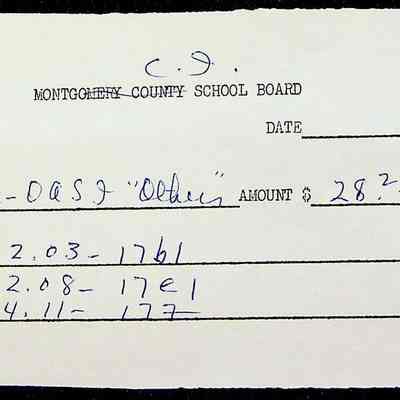 C. I.
MONTGOMERY COUNTY SCHOOL BOARD
DATE
- OASI "Other" AMOUNT $ 28.2-
2.03 - 17b1
2.08 - 17e1
4.11 - 177